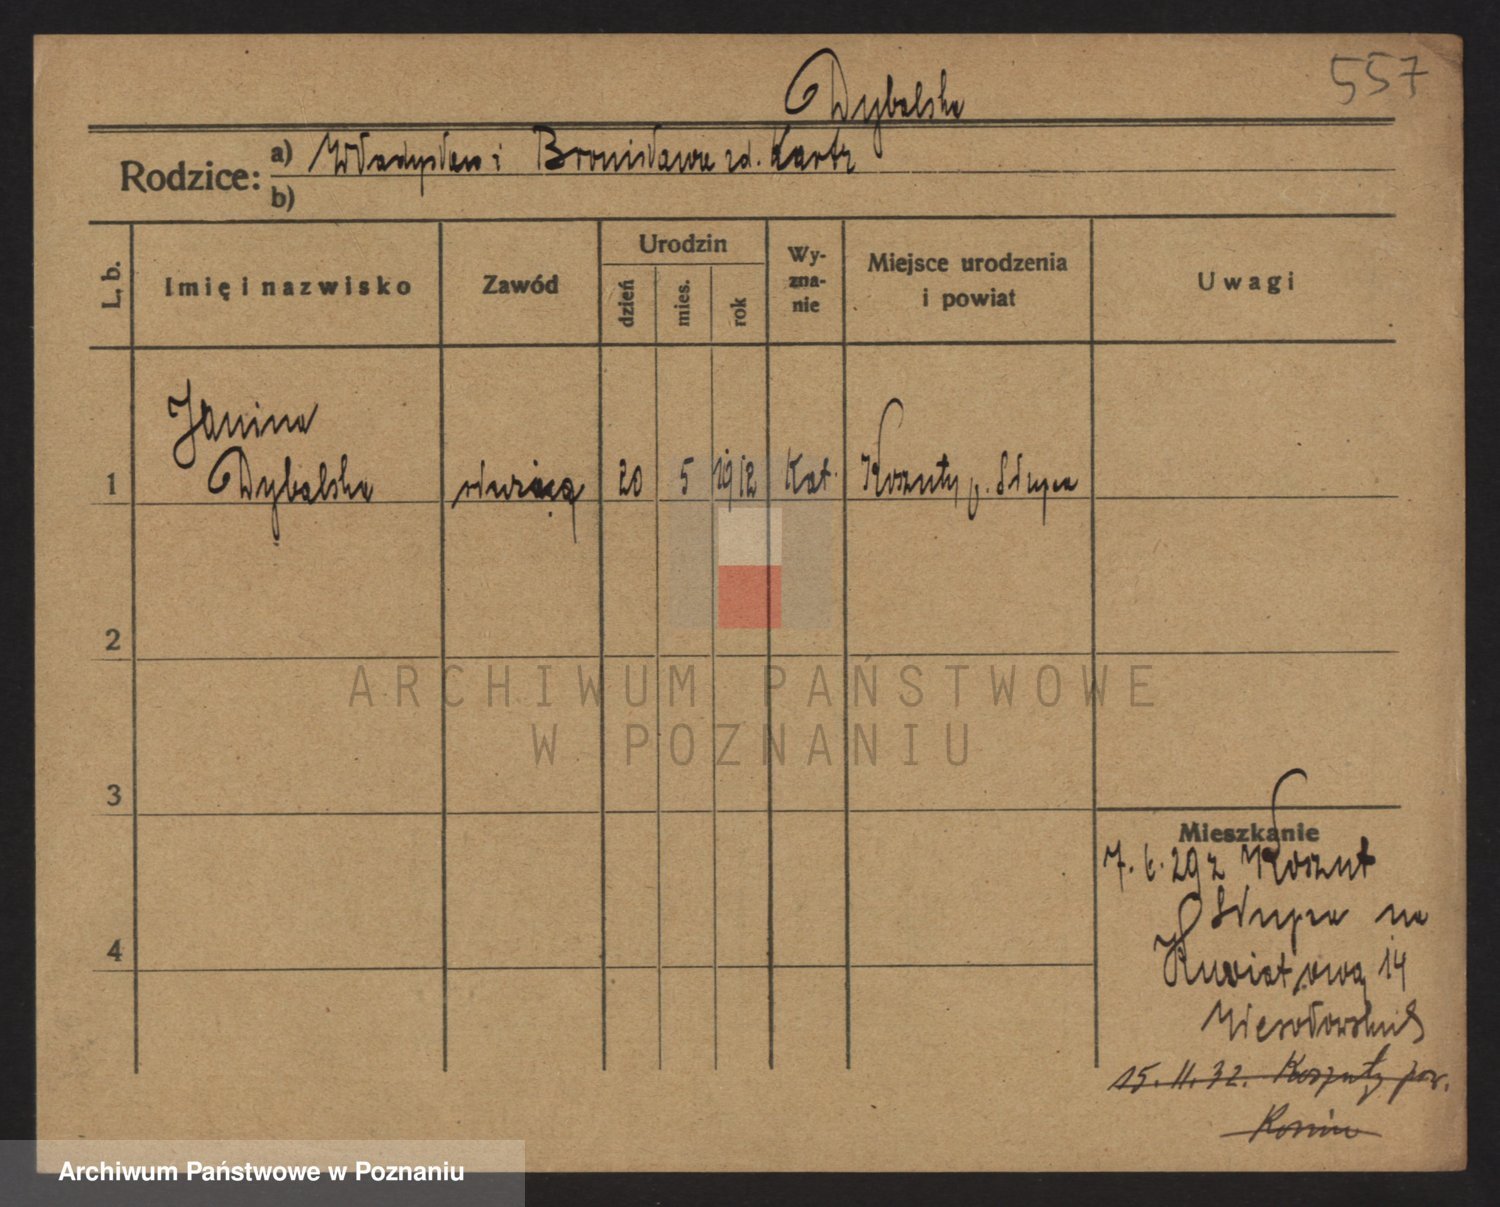 557
Dybalska
Rodzice: a) Władysław i Bronisława zd. Kartz
b)
L. b.
Imię i nazwisko
Zawód
Urodzin
dzień
mies.
rok
Wy-
zna-
nie
Miejsce urodzenia
i powiat
Uwagi
Janina
1 Dybalska służącą 20 5 1912 Kat. Koszuty p. Słupca
2
3
4
Mieszkanie
7. 6. 29 z Koszut
Słupca na
Kwiatową 14
15. 11. 32. Koszuty pow.
Konin
ARCHIWUM PAŃSTWOWE
W POZNANIU
Archiwum Państwowe w Poznaniu